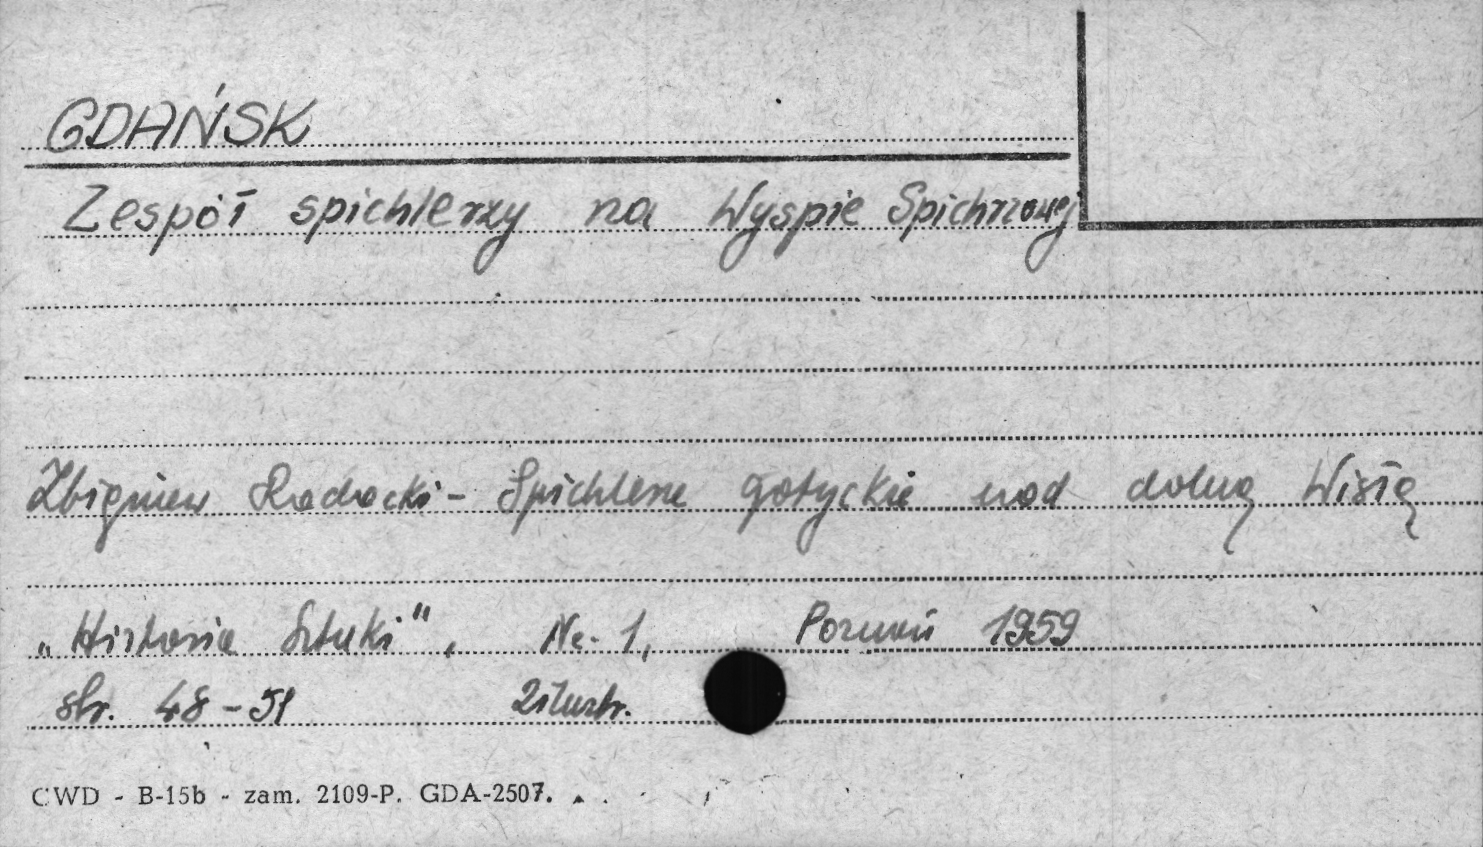 GDAŃSK
Zespół spichlerzy na Wyspie Spichrzowej
Zbigniew Radacki - Spichlerze gotyckie nad dolną Wisłą
„Historia Sztuki", Nr. 1, Poznań 1959
str. 48-51 2 ilustr.
CWD - B-15b - zam. 2109-P. GDA-2507.